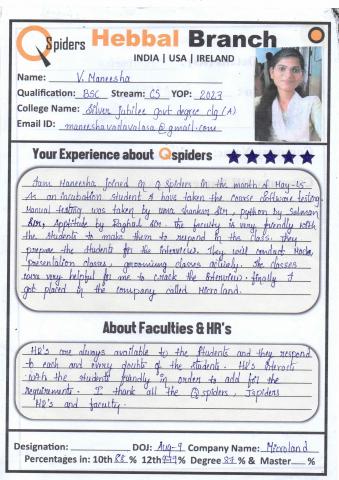 QSpiders Hebbal Branch
INDIA | USA | IRELAND
Name: V. Maneesha
Qualification: BSC Stream: CS YOP: 2023
College Name: Silver Jubilee govt degree clg (A)
Email ID: maneeshavadavalasa@gmail.com
Your Experience about Qspiders
I am Maneesha joined in Q Spiders in the month of May-25
As an incubation student I have taken the course software testing
Manual testing was taken by uma shankar sir, python by Salman
sir, Apptitude by Raghul sir. The faculty is very friendly with
the students to make them to respond in the class. They
prepare the students for the interview. They will conduct Mocks,
presentation classes, grooming classes actively. The classes
were very helpful for me to crack the Interview. finally I
got placed in the company called Microland.
About Faculties & HR's
HR's are always available to the students and they respond
to each and every doubts of the students. HR's interacts
with the students friendly in order to add for the
requirements. I thank all the Qspiders, Jspiders
HR's and faculty.
Designation: DOJ: Aug-9 Company Name: Microland
Percentages in: 10th 88 % 12th % Degree % & Master %